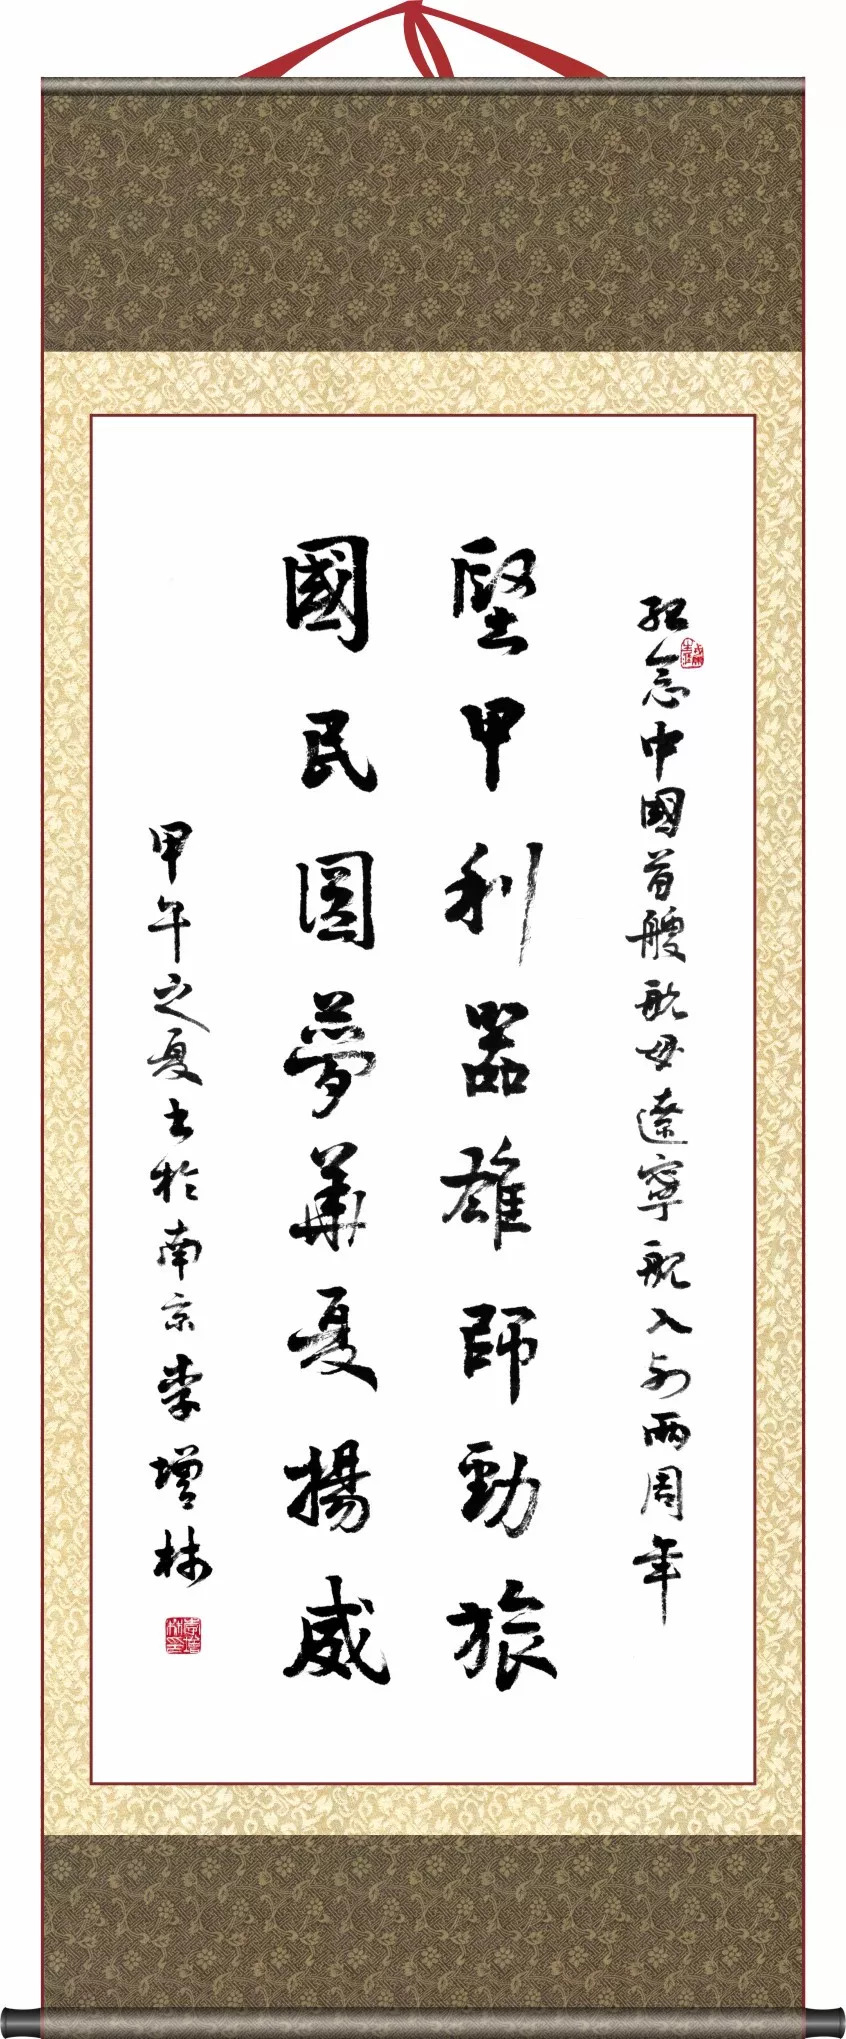 紀念中國首艘航母遼寧舰入列兩周年
堅甲利器雄師勁旅
國民圓夢華夏揚威
甲午之夏書於南京李增林